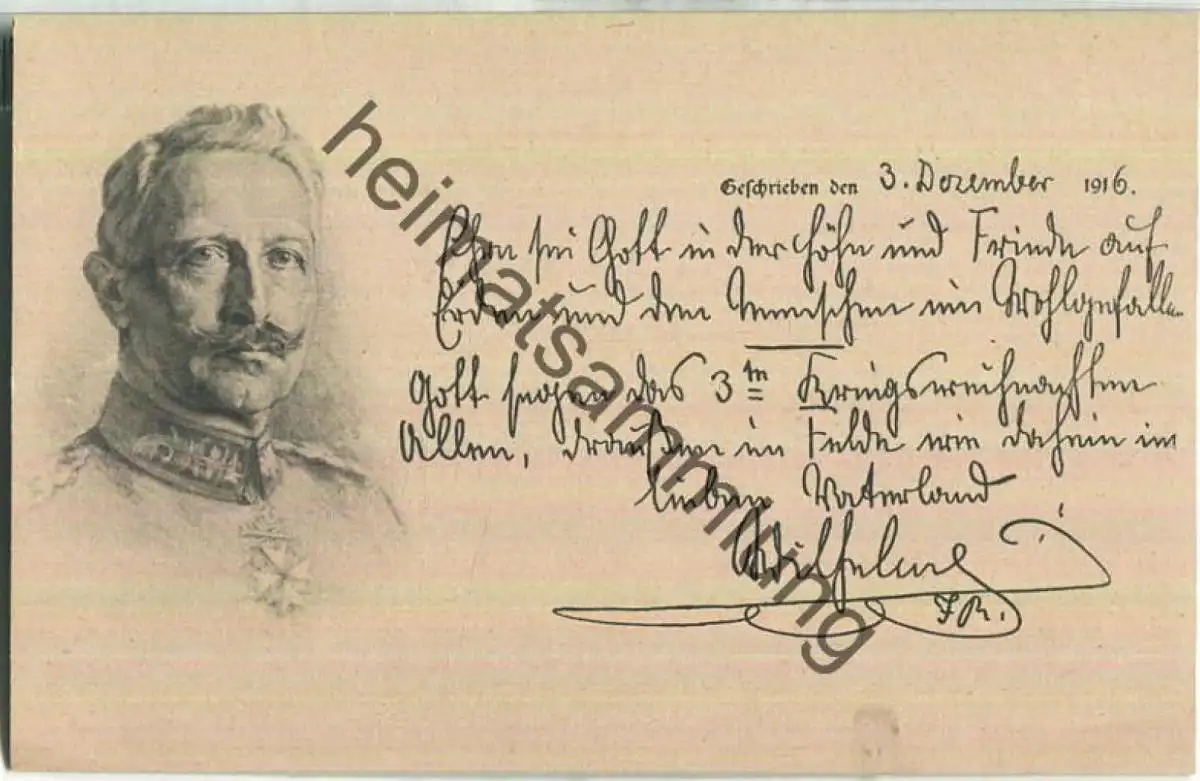 Geschrieben den 3. Dezember 1916.
Ehre sei Gott in der Höhe und Friede auf
Erden und den Menschen ein Wohlgefallen
Gott segne das 3te Kriegsweihnachten
Allen, draußen im Felde wie daheim im
lieben Vaterland
Wilhelm
I.R.
heimatsammlung